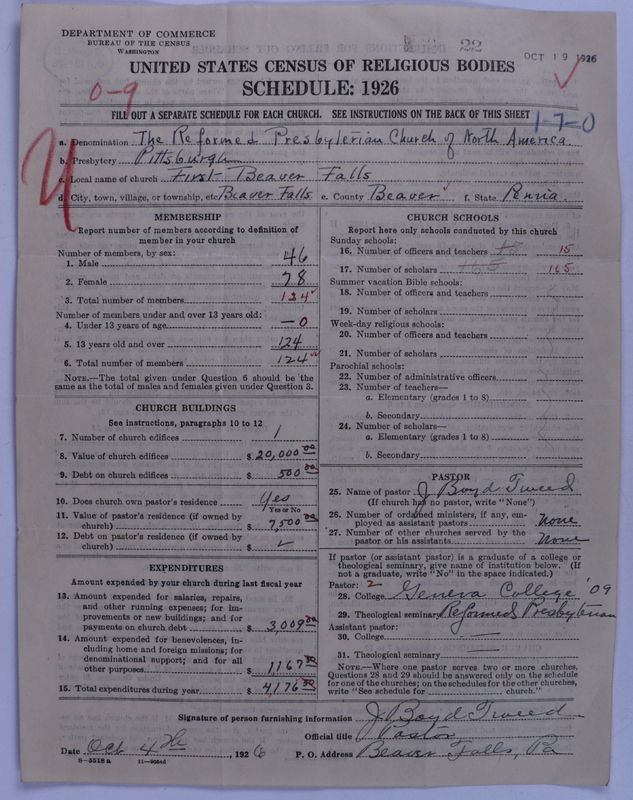 DEPARTMENT OF COMMERCE
BUREAU OF THE CENSUS
WASHINGTON
22
OCT 19 1926
UNITED STATES CENSUS OF RELIGIOUS BODIES
SCHEDULE: 1926
0-9
FILL OUT A SEPARATE SCHEDULE FOR EACH CHURCH. SEE INSTRUCTIONS ON THE BACK OF THIS SHEET
1-7-0
a. Denomination The Reformed Presbyterian Church of North America.
b. Presbytery Pittsburgh
c. Local name of church First Beaver Falls
d. City, town, village, or township, etc. Beaver Falls e. County Beaver f. State Penna.
MEMBERSHIP
Report number of members according to definition of member in your church
Number of members, by sex:
1. Male 46
2. Female 78
3. Total number of members 124
Number of members under and over 13 years old:
4. Under 13 years of age — 0
5. 13 years old and over 124
6. Total number of members 124
NOTE.—The total given under Question 6 should be the same as the total of males and females given under Question 3.
CHURCH BUILDINGS
See instructions, paragraphs 10 to 12
7. Number of church edifices 1
8. Value of church edifices $ 20,000 00
9. Debt on church edifices $ 500 00
10. Does church own pastor's residence Yes
Yes or No
11. Value of pastor's residence (if owned by church) $ 7,500 00
12. Debt on pastor's residence (if owned by church) $
EXPENDITURES
Amount expended by your church during last fiscal year
13. Amount expended for salaries, repairs, and other running expenses; for improvements or new buildings; and for payments on church debt $ 3,009
14. Amount expended for benevolences, including home and foreign missions; for denominational support; and for all other purposes $ 1,167
15. Total expenditures during year $ 4,176
CHURCH SCHOOLS
Report here only schools conducted by this church
Sunday schools:
16. Number of officers and teachers 15
17. Number of scholars 165 165
Summer vacation Bible schools:
18. Number of officers and teachers
19. Number of scholars
Week-day religious schools:
20. Number of officers and teachers
21. Number of scholars
Parochial schools:
22. Number of administrative officers
23. Number of teachers—
a. Elementary (grades 1 to 8)
b. Secondary
24. Number of scholars—
a. Elementary (grades 1 to 8)
b. Secondary
PASTOR
25. Name of pastor J Boyd Tweed
(If church has no pastor, write "None")
26. Number of ordained ministers, if any, employed as assistant pastors None
27. Number of other churches served by the pastor or his assistants None
If pastor (or assistant pastor) is a graduate of a college or theological seminary, give name of institution below. (If not a graduate, write "No" in the space indicated.)
Pastor: 2
28. College Geneva College '09
29. Theological seminary Reformed Presbyterian
Assistant pastor:
30. College —
31. Theological seminary —
NOTE.—Where one pastor serves two or more churches, Questions 28 and 29 should be answered only on the schedule for one of the churches; on the schedules for the other churches, write "See schedule for church."
Signature of person furnishing information J. Boyd Tweed
Official title Pastor
Date Oct 4th, 1926 P. O. Address Beaver Falls, Pa
8—5518 a